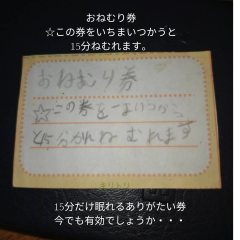 おねむり券
☆この券をいちまいつかうと
15分ねむれます。
おねむり券
☆この券を一まいつかう
と15分かんねむれます
きりとり
15分だけ眠れるありがたい券
今でも有効でしょうか・・・